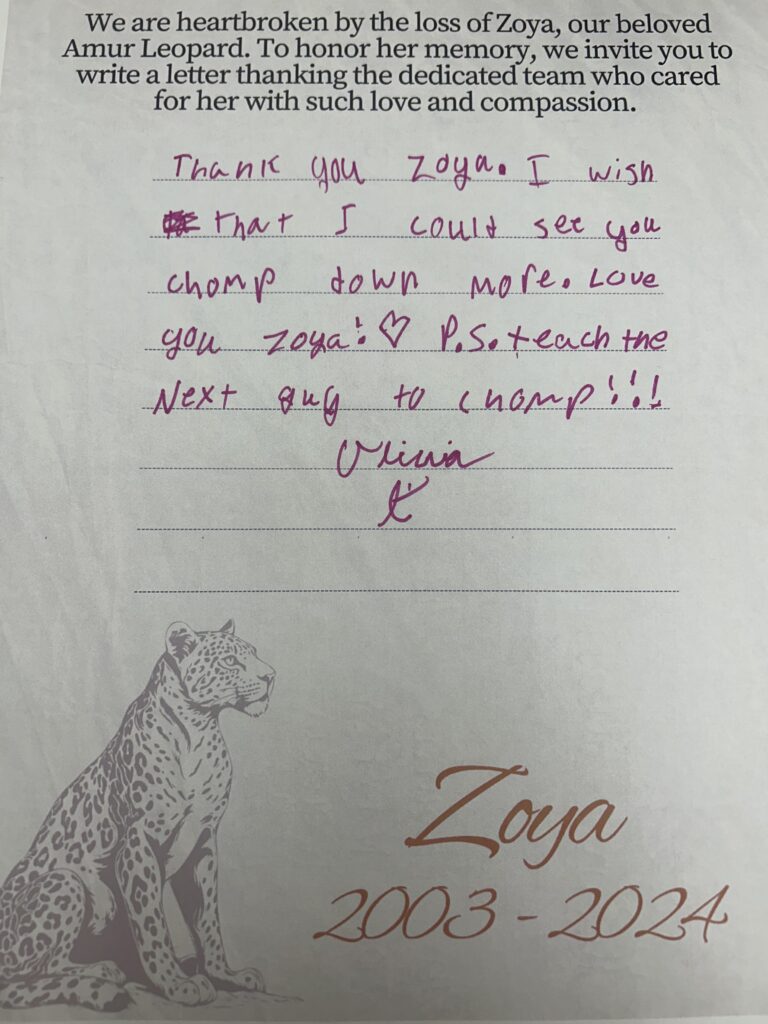 We are heartbroken by the loss of Zoya, our beloved
Amur Leopard. To honor her memory, we invite you to
write a letter thanking the dedicated team who cared
for her with such love and compassion.
Thank you Zoya. I wish
that I could see you
chomp down more. Love
you Zoya! ♡ P.S. teach the
Next guy to chomp!!!
Olivia
Zoya
2003 - 2024